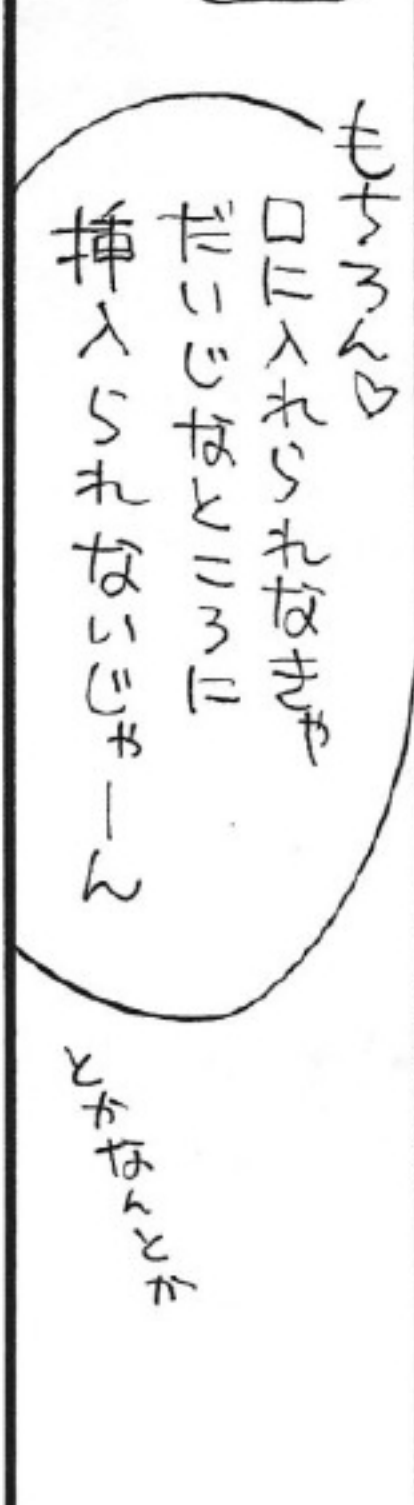 もちろん♡
口に入れられなきゃ
だいじなところに
挿入られないじゃーん
とかなんとか